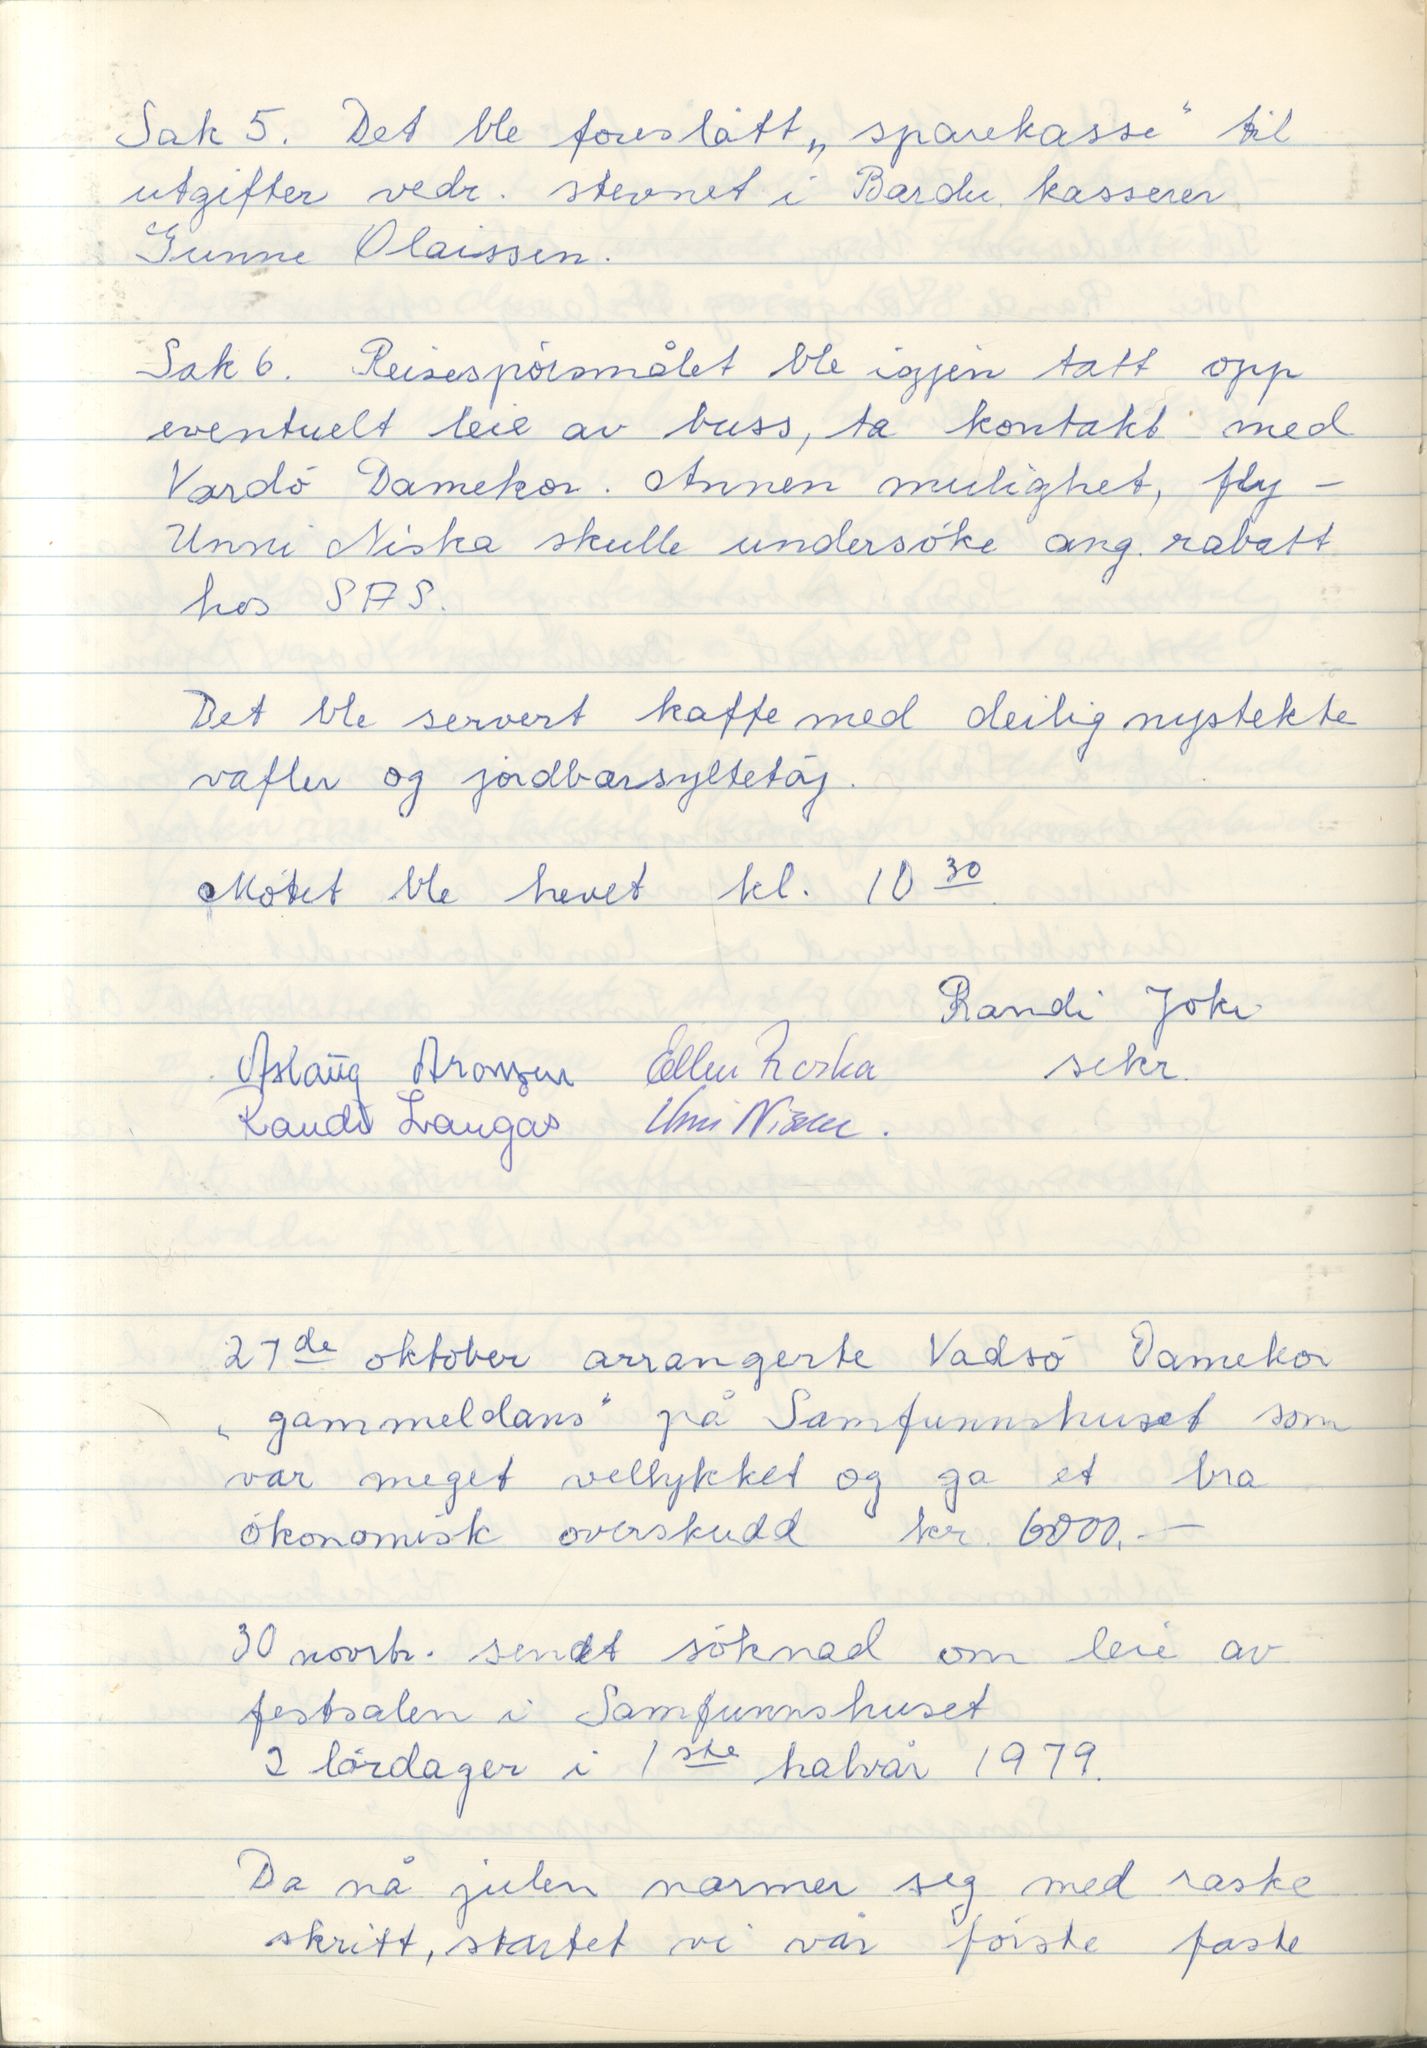 Sak 5. Det ble foreslått „sparekasse" til
utgifter vedr. stevnet i Bardu, kasserer
Gunne Olaissen.
Sak 6. Reisespörsmålet ble igjen tatt opp
eventuelt leie av buss, ta kontakt med
Vardö Damekor. Annen mulighet, fly -
Unni Niska skulle undersöke ang. rabatt
hos SAS.
Det ble servert kaffe med deilig nystekte
vafler og jordbærsyltetöy.
Mötet ble hevet kl. 10 30
Randi Joki
Aslaug Aronsen Ellen sekr.
Randi Langås Unni Niska.
27de oktober arrangerte Vadsö Damekor
„gammeldans" på Samfunnshuset som
var meget vellykket og ga et bra
ökonomisk overskudd kr. 6000,-
30 novbr. sendt söknad om leie av
festsalen i Samfunnshuset
2 lördager i 1ste halvår 1979.
Da nå julen nærmer seg med raske
skritt, startet vi vår förste faste